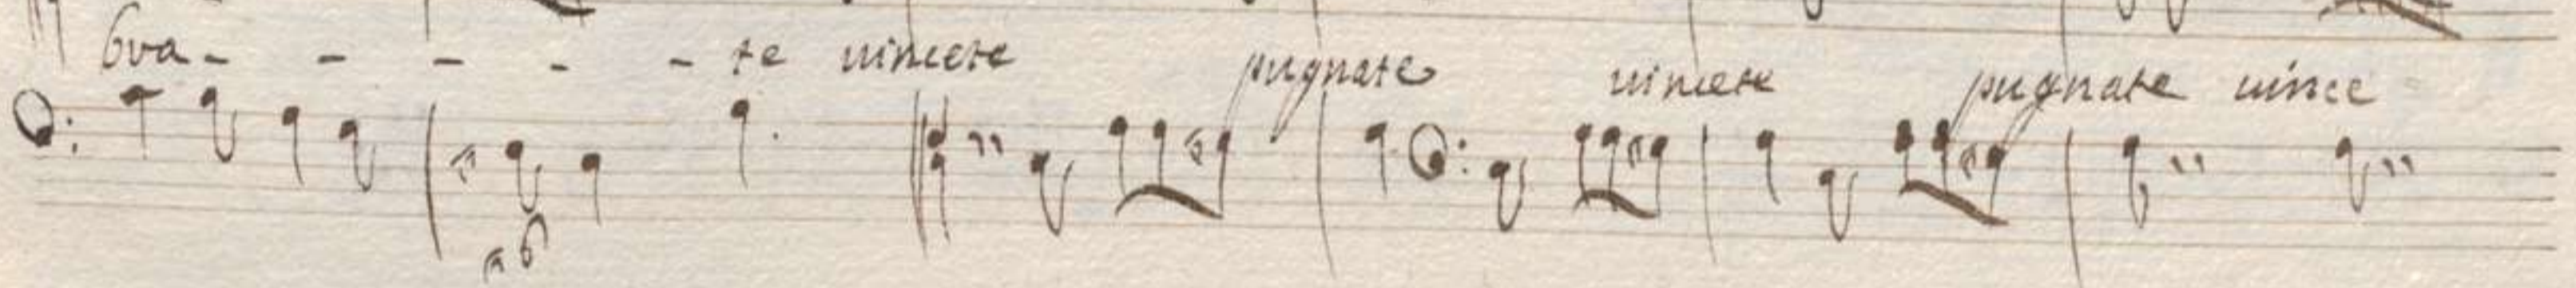 gva - - - - - te uincete pugnate uincete pugnate uince
6